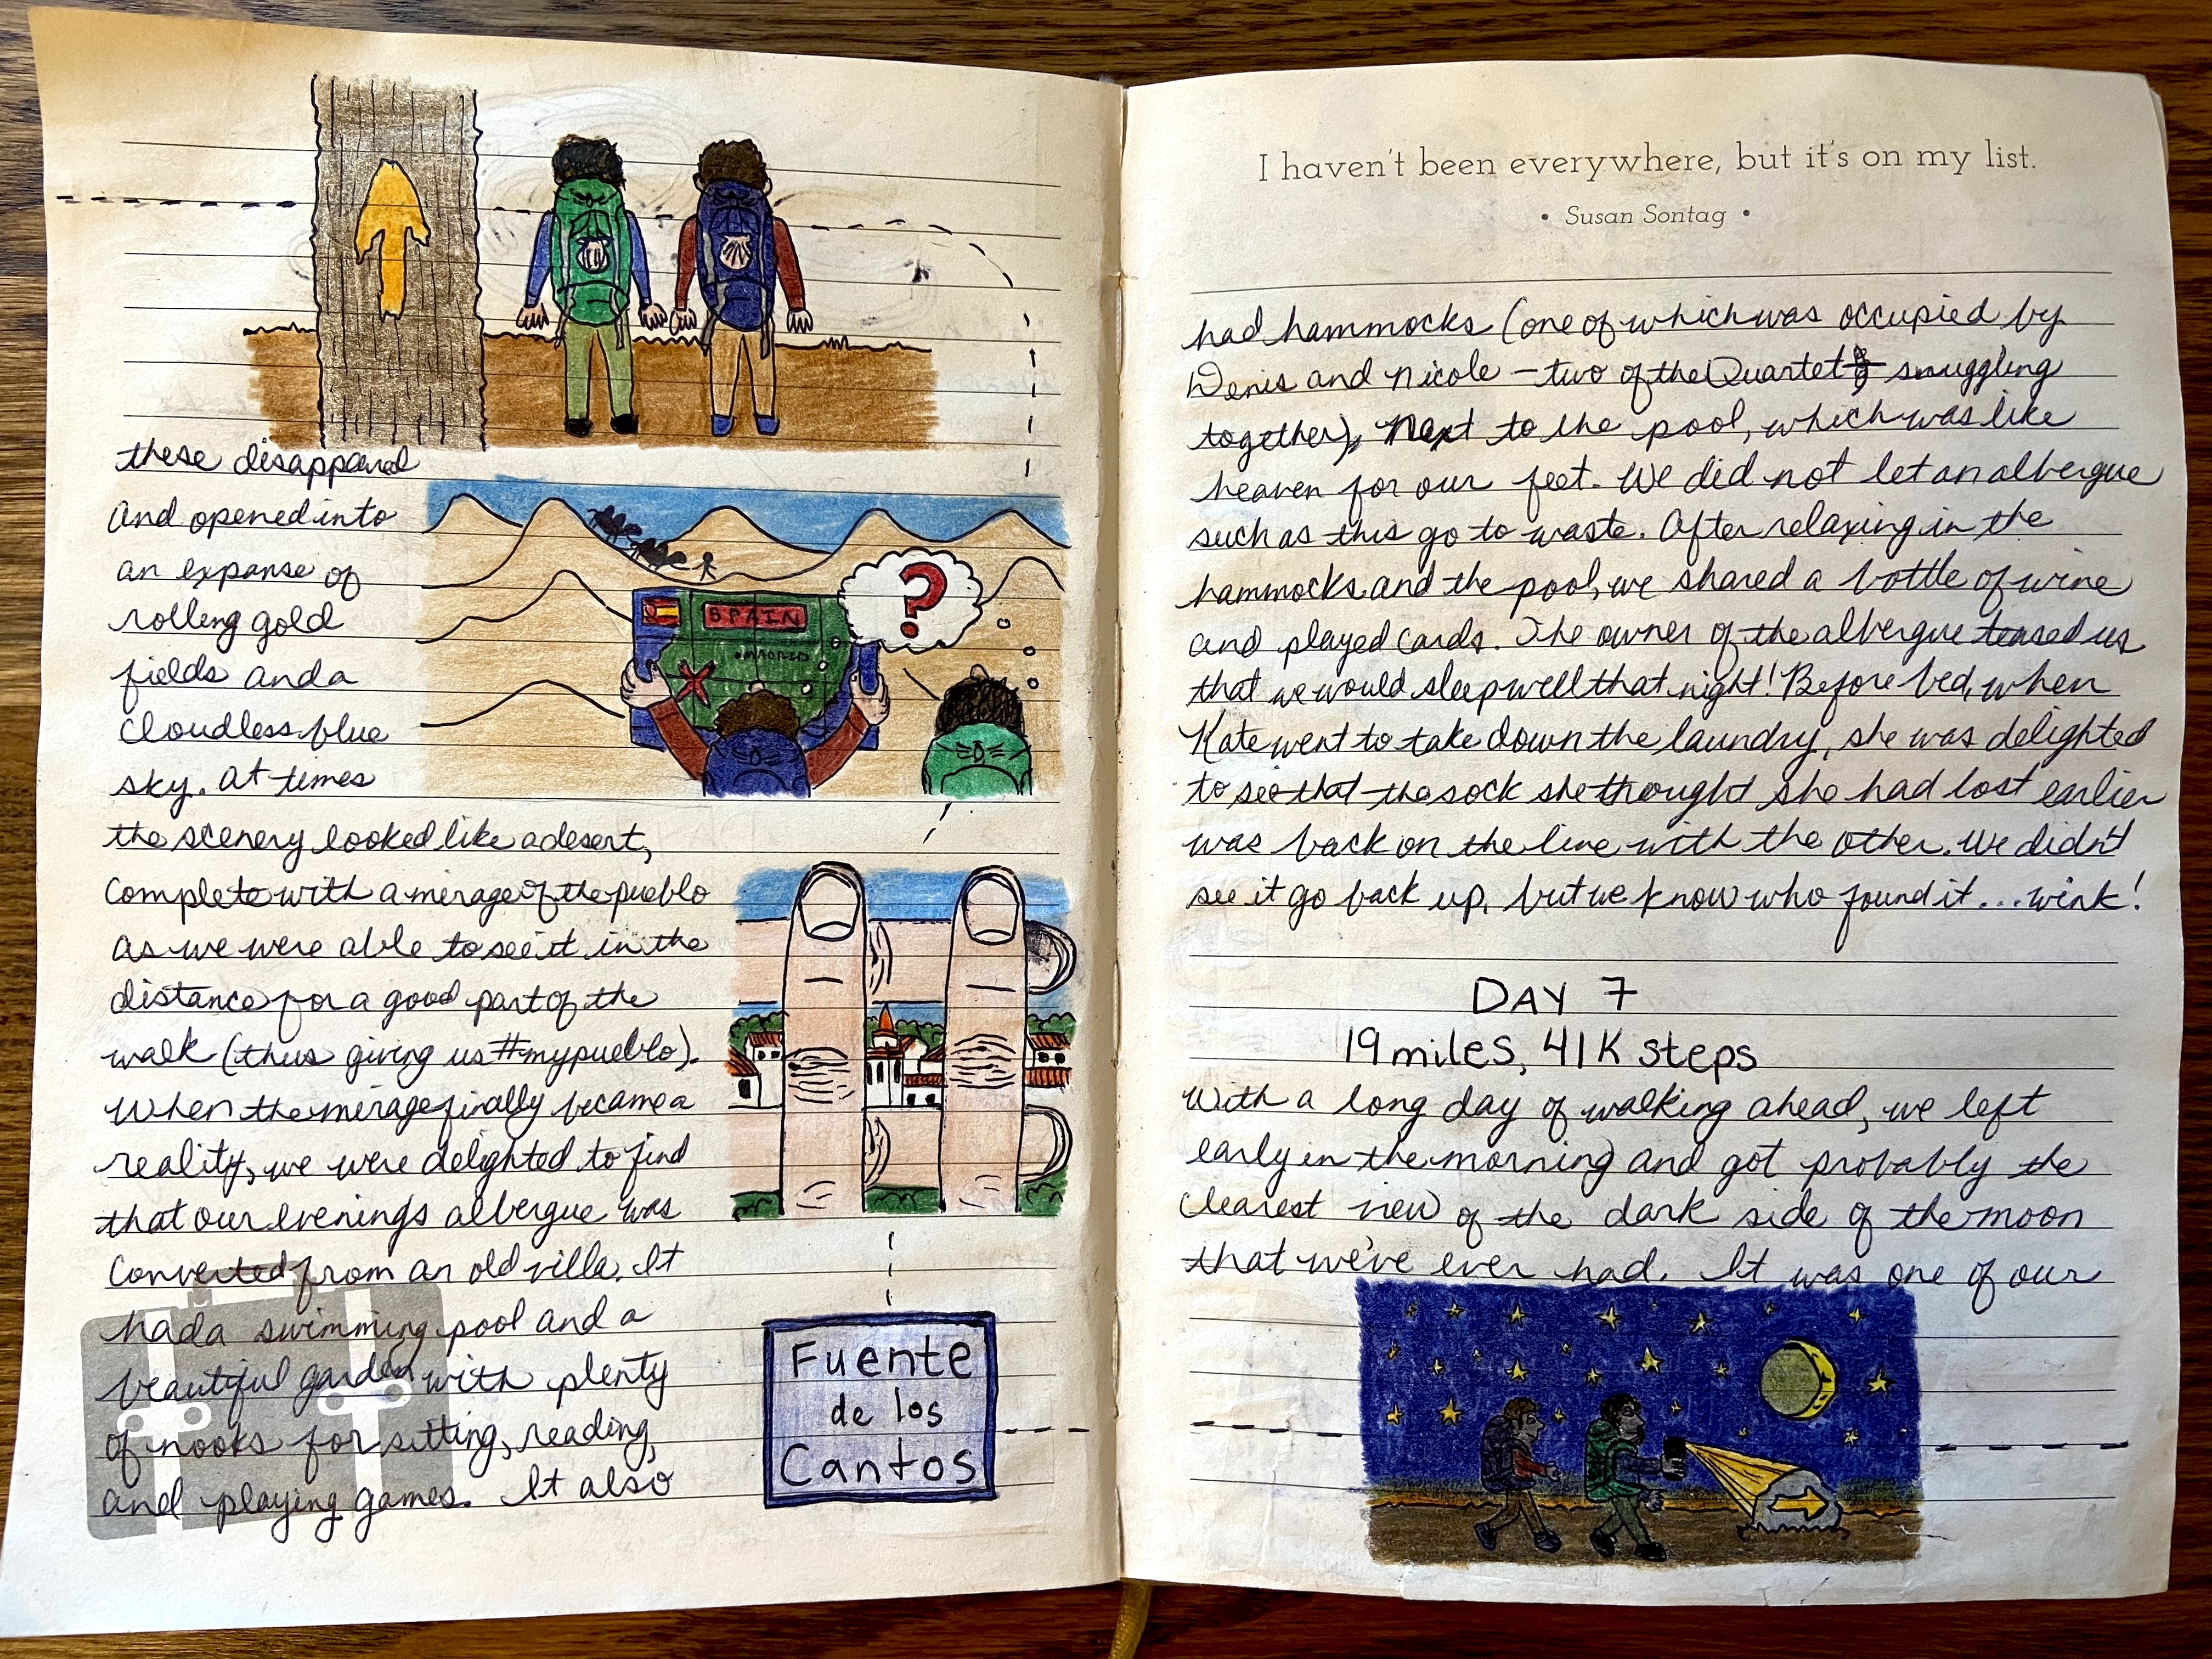 these disappared
and opened into
an expanse of
rolling gold
fields and a
cloudless blue
sky. At times
the scenery looked like a desert,
complete with a merage of the pueblo
as we were able to see it in the
distance for a good part of the
walk (thus giving us #mypueblo).
When the merage finally became a
reality, we were delighted to find
that our evenings albergue was
converted from an old villa. It
had a swimming pool and a
beautiful garden with plenty
of nooks for sitting, reading,
and playing games. It also
SPAIN
MADRID
?
Fuente
de los
Cantos
I haven't been everywhere, but it's on my list.
• Susan Sontag •
had hammocks (one of which was occupied by
Denis and Nicole - two of the Quartet snuggling
together), next to the pool, which was like
heaven for our feet. We did not let an albergue
such as this go to waste. After relaxing in the
hammocks and the pool, we shared a bottle of wine
and played cards. The owner of the albergue teased us
that we would sleep well that night! Before bed, when
Kate went to take down the laundry, she was delighted
to see that the sock she thought she had lost earlier
was back on the line with the other. We didn't
see it go back up, but we know who found it...wink!
DAY 7
19 miles, 41K steps
With a long day of walking ahead, we left
early in the morning and got probably the
clearest view of the dark side of the moon
that we've ever had. It was one of our